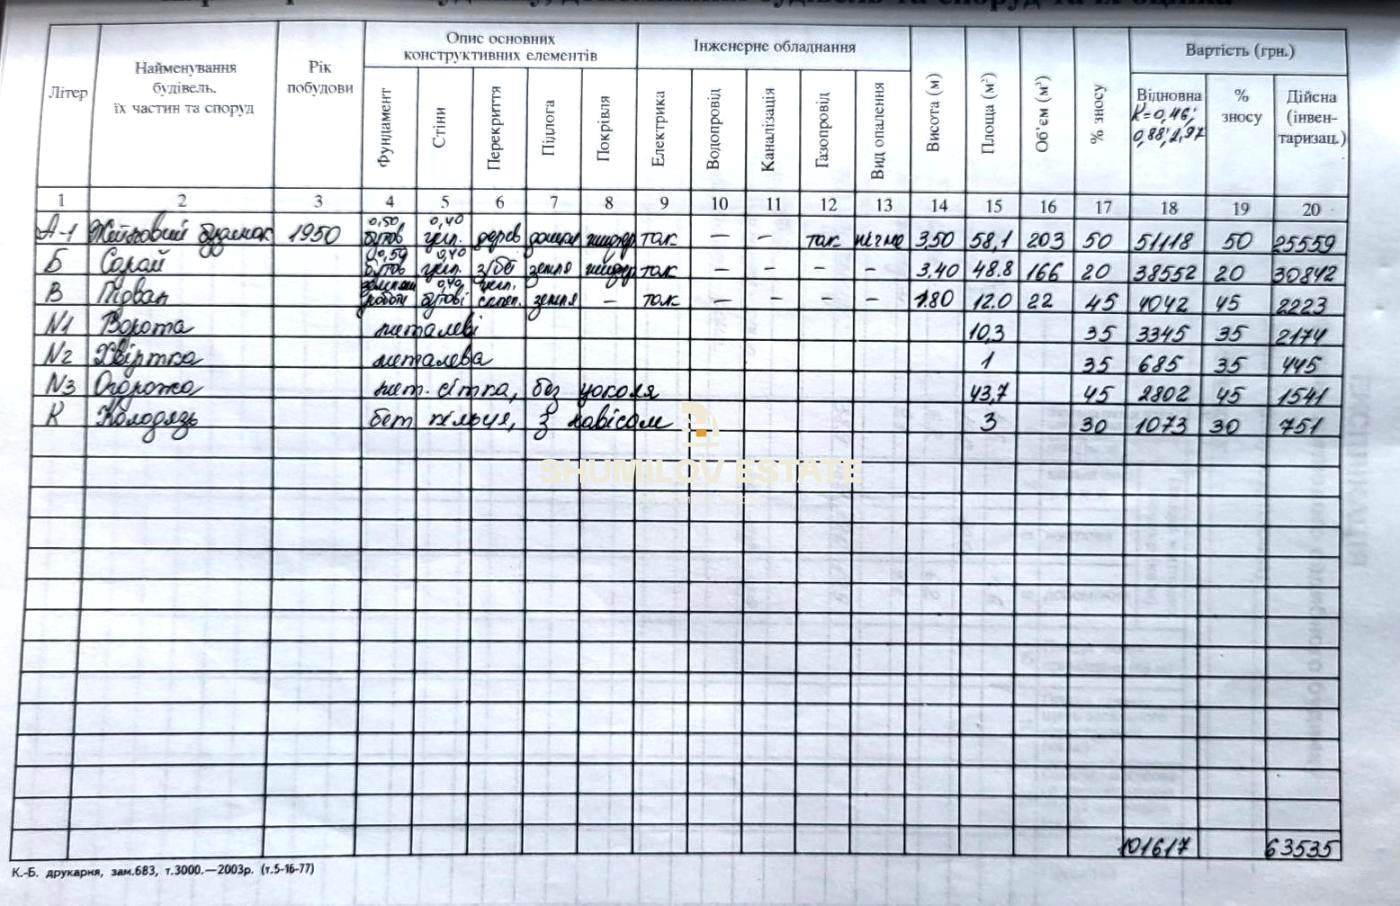 Опис основних
конструктивних елементів
Інженерне обладнання
Вартість (грн.)
Літер
Найменування
будівель,
їх частин та споруд
Рік
побудови
Фундамент
Стіни
Перекриття
Підлога
Покрівля
Електрика
Водопровід
Каналізація
Газопровід
Вид опалення
Висота (м)
Площа (м²)
Об'єм (м³)
% зносу
Відновна
К=0,46;
0,88; 1,97
%
зносу
Дійсна
(інвен-
таризац.)
1 2 3 4 5 6 7 8 9 10 11 12 13 14 15 16 17 18 19 20
0,50, 0,40
А-1 Житловий будинок 1950 бутов цегл. дерев дощат шифер так – – так пічне 3,50 58,1 203 50 51118 50 25559
0,50 0,40
Б Сарай бутов цегл. з/бб земля шифер так – – – – 3,40 48.8 166 20 38552 20 30842
0,40 цегл.
В Підвал роботи бутові склеп. земля – так – – – – 1.80 12.0 22 45 4042 45 2223
N1 Ворота металеві 10,3 35 3345 35 2174
N2 Хвіртка металева 1 35 685 35 445
N3 Огорожа мет. сітка, без цоколя 43,7 45 2802 45 1541
К Колодязь бет кільця, з навісом 3 30 1073 30 751
SHUMILOV ESTATE
101617 63535
К.-Б. друкарня, зам.683, т.3000.—2003р. (т.5-16-77)